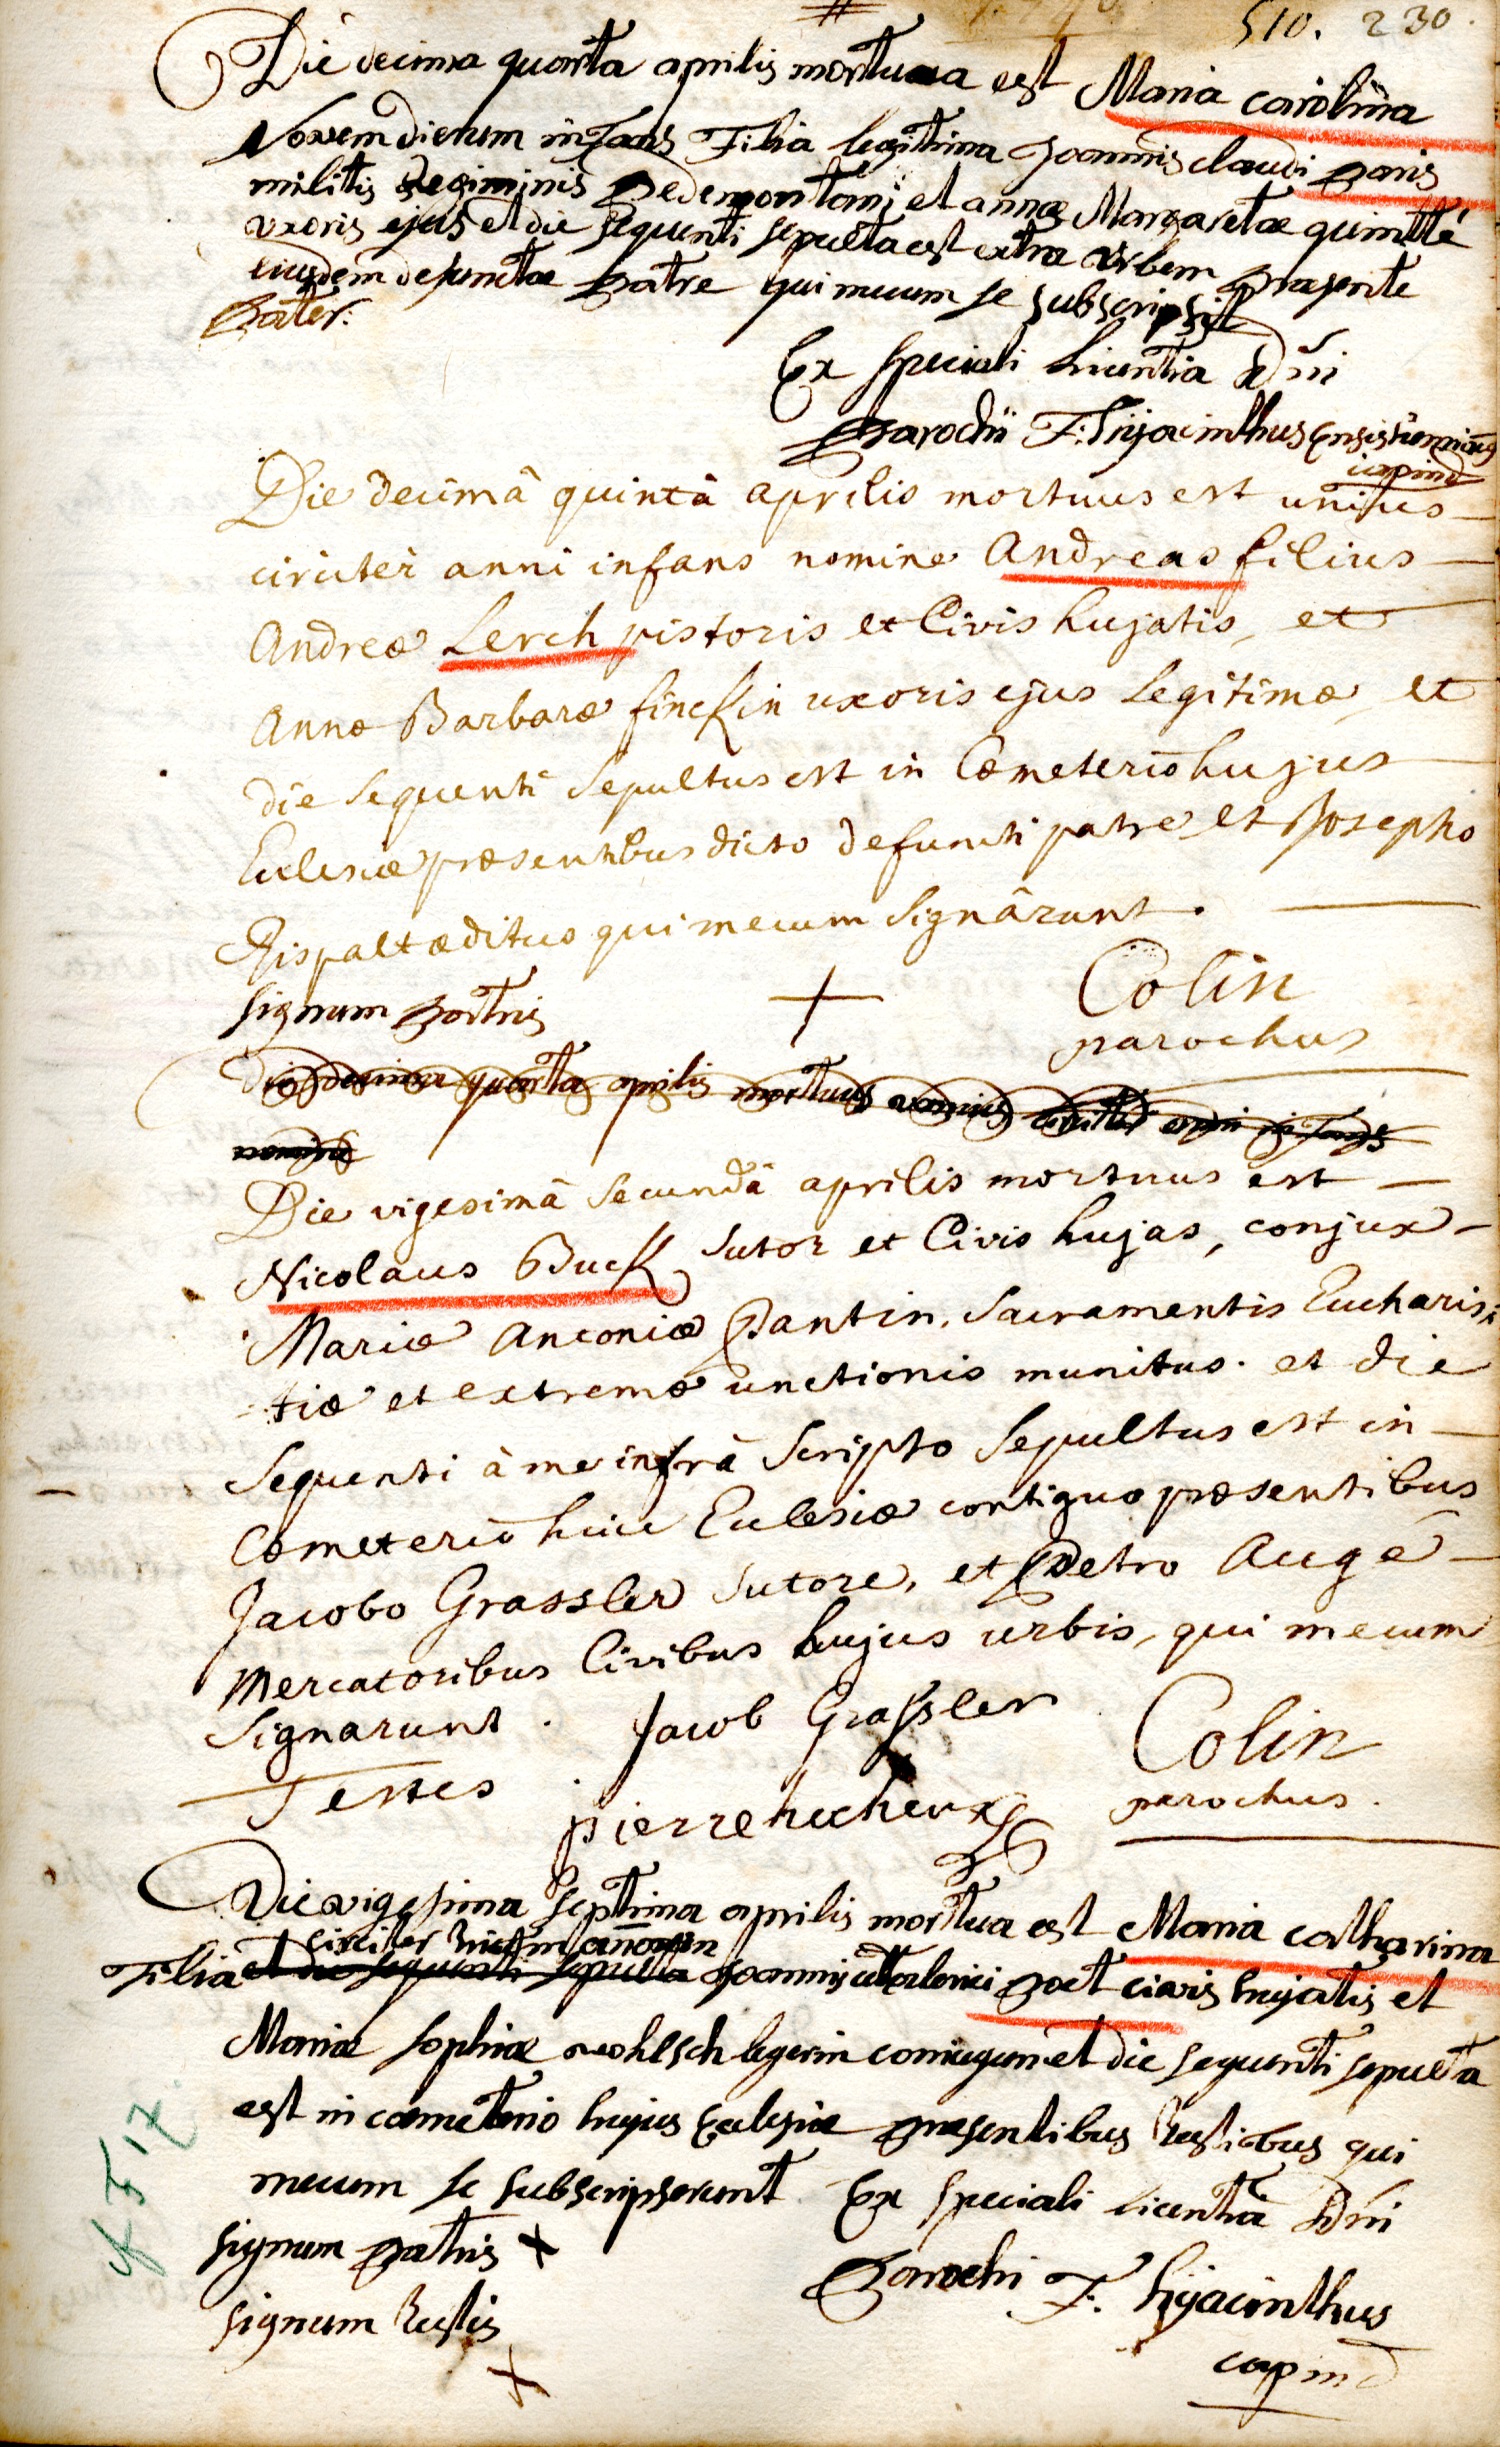 510. 230.
Die decima quarta aprilis mortua est Maria carolina
Novem dierum infans Filia legitima Joannis claudi paris
militis Regiminis Pedemontani et annae Margaretae quintté
uxoris ejus et die sequenti sepulta est extra urbem praesente
eiusdem defunctae patre qui mecum se subscripsit
pater:
Ex speciali licentia Dni
Parochi F. hyacinthus
capind
Die decimâ quintâ aprilis mortuus est unius
circiter anni infans nomine Andreas filius
Andreae Lerch pistoris et Civis hujatis, et
Annae Barbarae finckin uxoris ejus legitimae, et
die sequenti sepultus est in Coemeterio hujus
Ecclesiae praesentibus dicto defuncti patre et Josepho
Rispalt aedituo qui mecum signârunt.
signum patris + Colin
parochus
Die decima quarta aprilis mortuus unius circiter anni infans
nomine
Die vigesimâ secundâ aprilis mortuus est
Nicolaus Buck sutor et Civis hujas, conjux
Mariae Antoniae Pantin, Sacramentis Eucharis-
tiae et extremae unctionis munitus. et die
sequenti à me infrà scripto sepultus est in
Coemeterio huic Ecclesiae contiguo praesentibus
Jacobo Grassler sutore, et Petro Augé
mercatoribus Civibus hujus urbis, qui mecum
signarunt. Jacob Grassler Colin
Testes pierre parochus.
Die vigesima septima aprilis mortua est Maria catharina
circiter annorum
Filia et die sequenti sepulta Joannis civis hujatis et
Mariae sophiae wohlschlegerin coniugum et die sequenti sepulta
est in coemeterio hujus Ecclesiae praesentibus testibus qui
mecum se subscripserunt Ex speciali licentia Dni
signum patris x Parochi F. hyacinthus
signum testis capind
x
cf F 17.